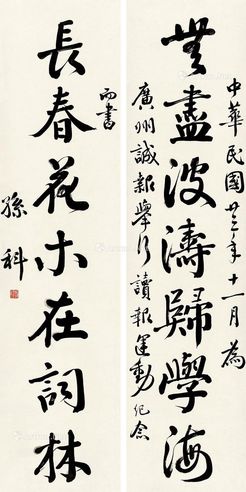 中華民國廿三年十一月為
無盡波濤歸學海
廣州誠報舉行讀報運動紀念
而書
長春花木在詞林
孫科